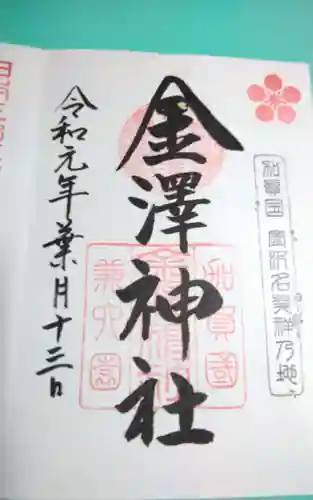 加賀国 金沢名発祥乃地
金澤神社
加賀國
兼六園
令和元年葉月十三日